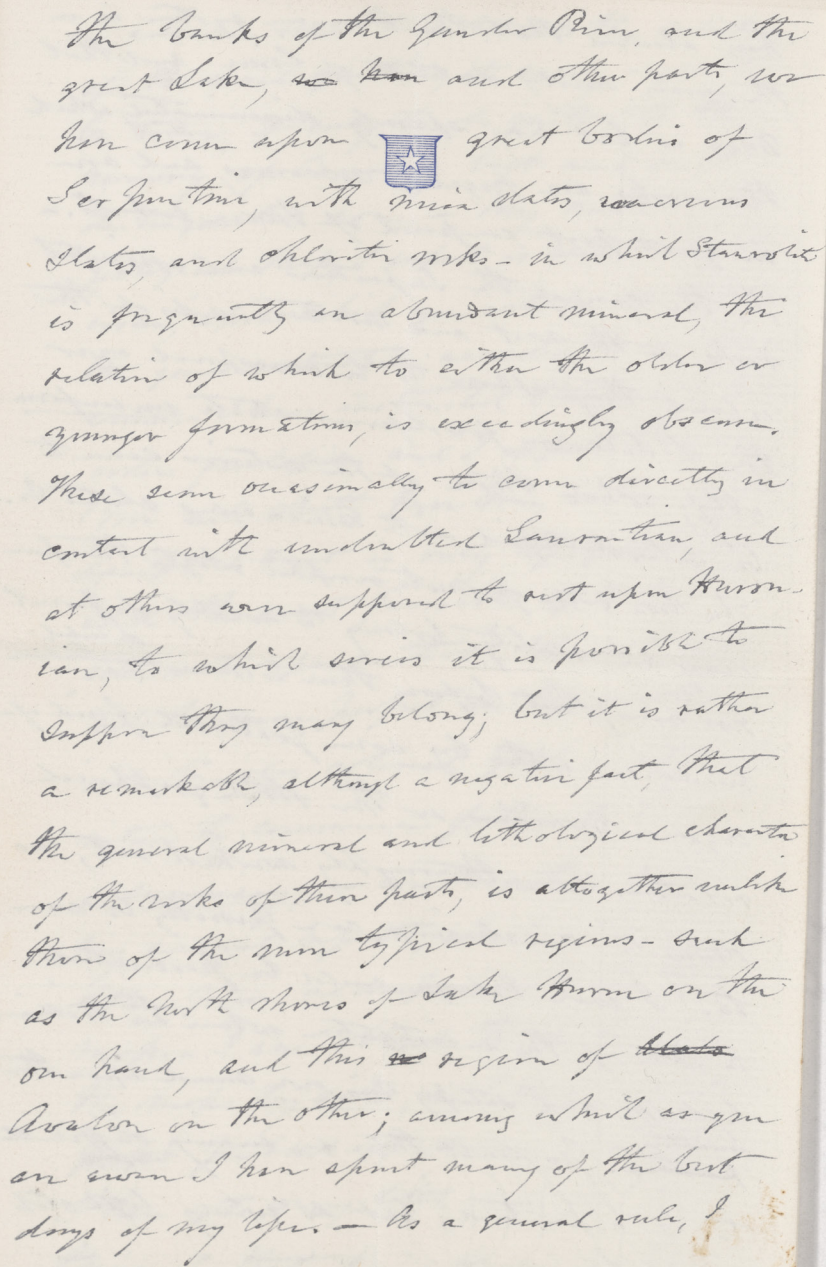 the banks of the Gander River, and the
great Lake, we have and other parts, we
have come upon great bodies of
Serpentine, with mica slates, nacreous
slates, and chloritic rocks – in which Staurolite
is frequently an abundant mineral, the
relation of which to either the older or
younger formations, is exceedingly obscure.
These seem occasionally to come directly in
contact with undoubted Laurentian, and
at others were supposed to rest upon Huron-
ian, to which series it is possible to
suppose they may belong; but it is rather
a remarkable, although a negative fact, that
the general mineral and lithological character
of the rocks of these parts, is altogether unlike
those of the more typical regions – such
as the North shores of Lake Huron on the
one hand, and this region of
Avalon on the other; among which as you
are aware I have spent many of the best
days of my life. – As a general rule, I